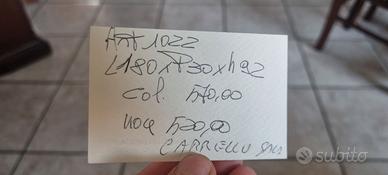 Art 1022
L180xP30xh92
col. 570,00
noce 520,00
CARRELLO
subito